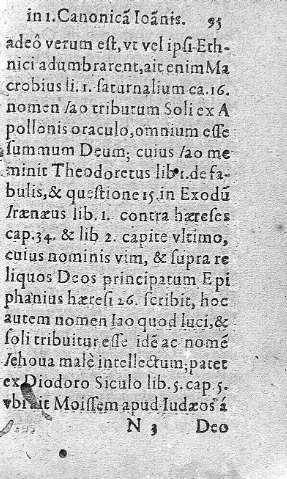 in 1. Canonicā Ioānis. 95
adeô verum est, vt vel ipsi Eth-
nici adumbrarent, ait enim Ma
crobius li. 1. saturnalium ca. 16.
nomen Iao tributum Soli ex A
pollonis oraculo, omnium esse
summum Deum; cuius Iao me
minit Theodoretus lib 1. de fa-
bulis, & quęstione 15. in Exodū
Irænæus lib. 1. contra hæreses
cap. 34. & lib 2. capite vltimo,
cuius nominis vim, & supra re
liquos Deos principatum Epi
phanius hæresi 26. scribit, hoc
autem nomen Iao quod luci, &
soli tribuitur esse idē ac nomē
Iehoua malè intellectum; patet
ex Diodoro Siculo lib. 5. cap 5.
vbi ait Moissem apud Iudæos á
N 3 Deo